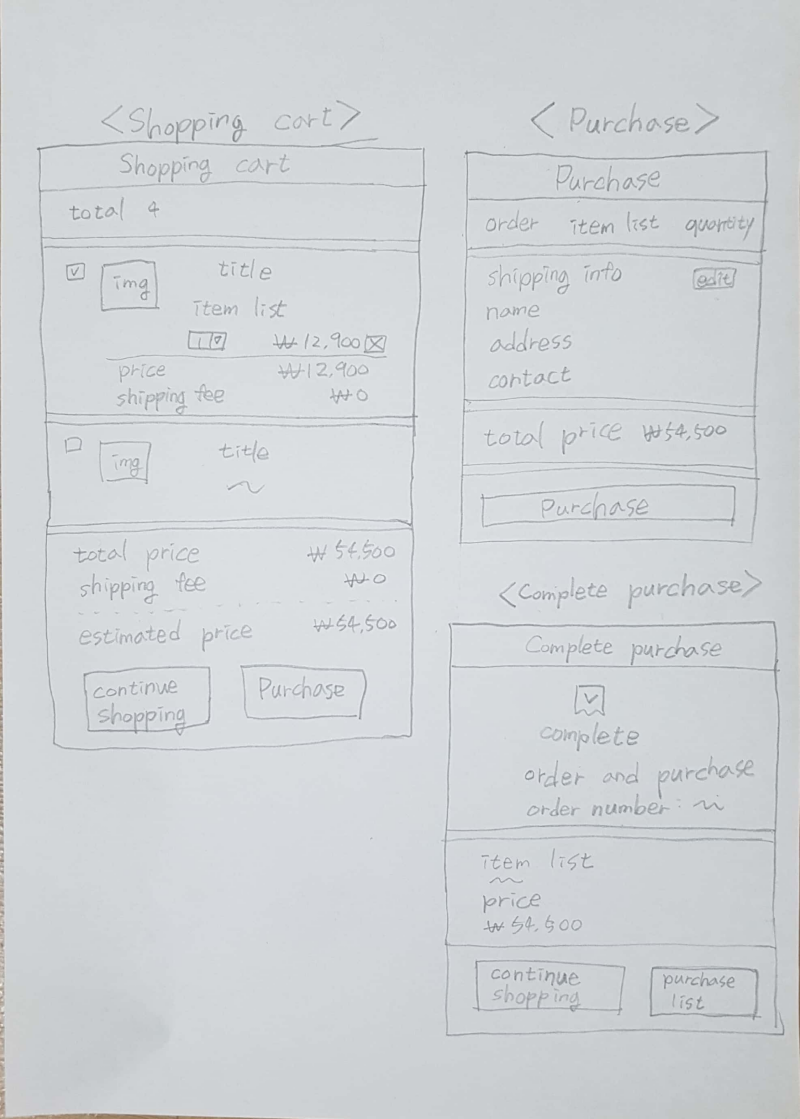 <Shopping cart>
Shopping cart
total 4
img
title
item list
1
₩12,900
price ₩12,900
shipping fee ₩0
img
title
total price ₩54,500
shipping fee ₩0
estimated price ₩54,500
continue
shopping
Purchase
<Purchase>
Purchase
order item list quantity
shipping info edit
name
address
contact
total price ₩54,500
Purchase
<Complete purchase>
Complete purchase
complete
order and purchase
order number :
item list
price
₩54,500
continue
shopping
purchase
list